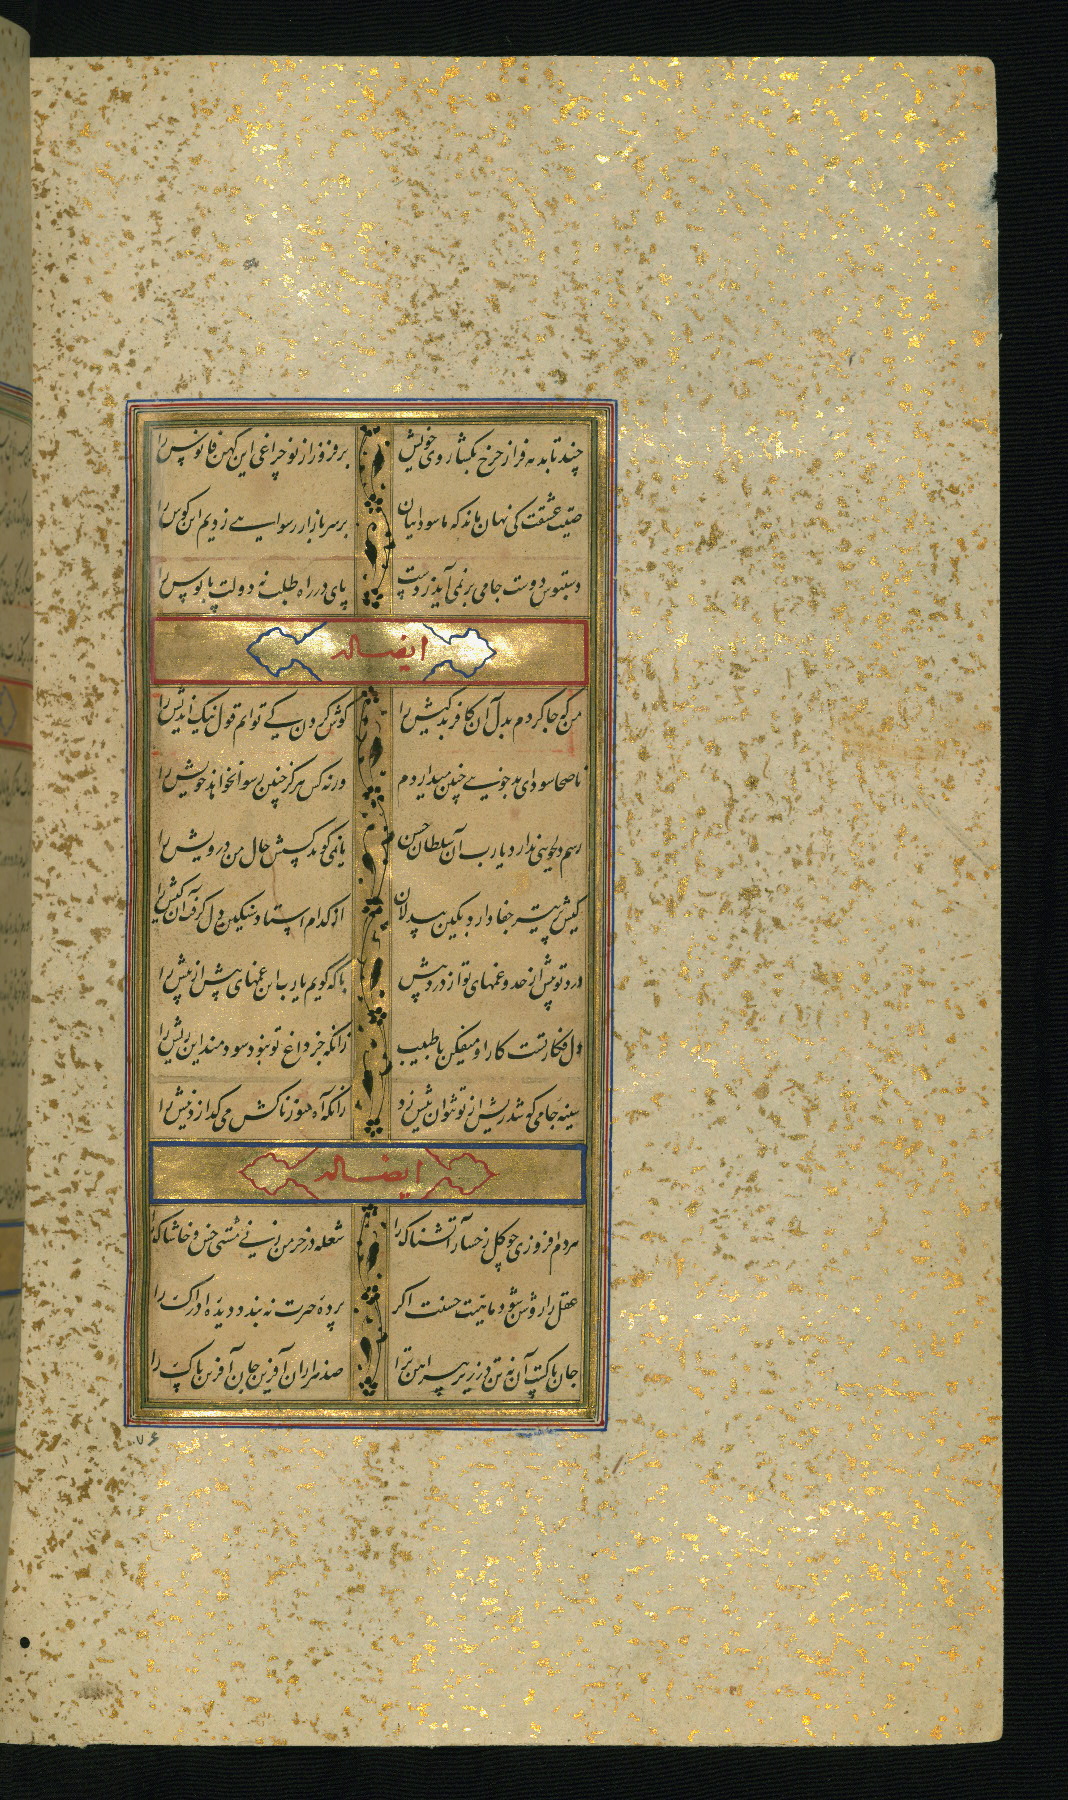 چند تابد مه فراز چرخ بگشا روی خویش برفروز از نو چراغی این کهن فانوس را
صیت عشقت کی نهان ماند که ما سوداییان بر سر بازار رسوایی زدیم این کوس را
دستبوس دوست جامی بر نمی آید ز دست پای در راه طلب نه دولت پابوس را
ایضا له
من که جا کردم بدل آن کافر بدکیش را گوش کردن کی توانم قول نیک اندیش را
ناصحا سودای بدخویی چنین میداردم ورنه کس هرگز چنین رسوا نخواهد خویش را
رسم دلجویی ندارد یارب آن سلطان حسن یا نمی گوید کسش حال من درویش را
کیش بیتیر جفا دارد بکین بیدلان از کدام استاد سنگین دل گرفت آن کیش را
درد تو بیش از حد و غمهای تو از درد بیش با که گویم یارب این غمهای بیش از بیش را
دل فکارتست کار او میفکن با طبیب زانکه جز داغ تو نبود سودمند این ریش را
سینه جامی که شد ریش از تو نتوان نیش زد زانکه آه سوزناکش می گدازد نیش را
ایضا له
مردم افروزی چو گل رخسار آتشناک را شعله در خرمن زنی مشتی خس و خاشاک را
عقل را روشن شود ماهیت حسنت اگر پرده حیرت نه بندد دیده ادراک را
جان پاکت آن نه تن در زیر پیراهن ترا صد هزاران آفرین جان آفرین پاک را
۷۶